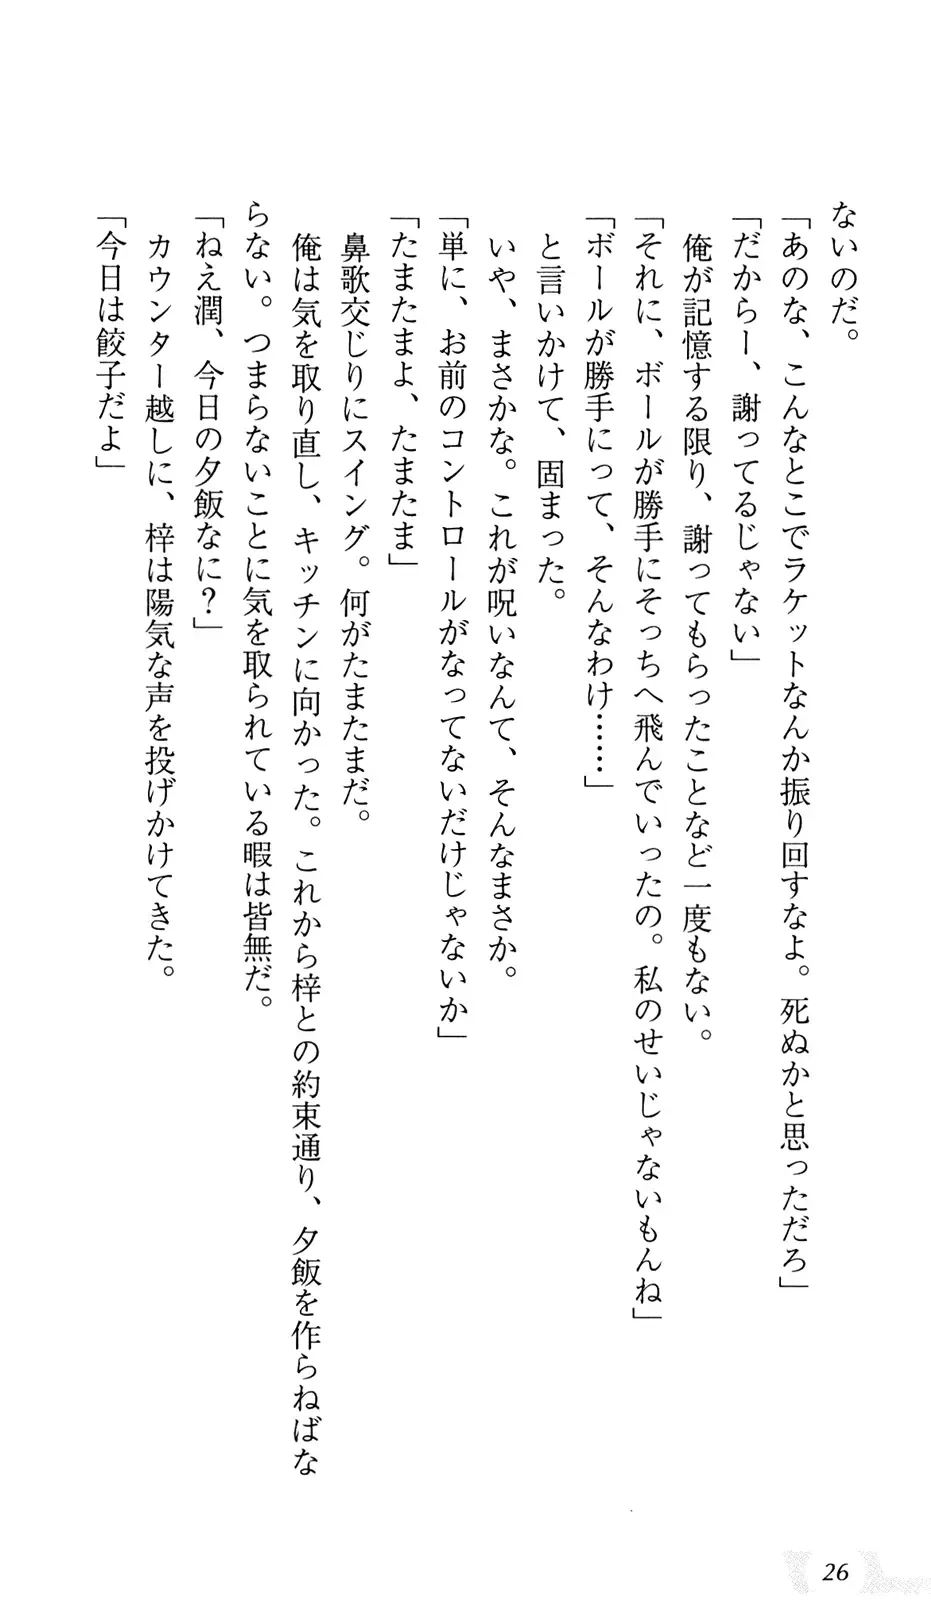 ないのだ。
「あのな、こんなとこでラケットなんか振り回すなよ。死ぬかと思っただろ」
「だからー、謝ってるじゃない」
　俺が記憶する限り、謝ってもらったことなど一度もない。
「それに、ボールが勝手にそっちへ飛んでいったの。私のせいじゃないもんね」
「ボールが勝手にって、そんなわけ……」
　と言いかけて、固まった。
　いや、まさかな。これが呪いなんて、そんなまさか。
「単に、お前のコントロールがなってないだけじゃないか」
「たまたまよ、たまたま」
　鼻歌交じりにスイング。何がたまたまだ。
　俺は気を取り直し、キッチンに向かった。これから梓との約束通り、夕飯を作らねばな
らない。つまらないことに気を取られている暇は皆無だ。
「ねえ潤、今日の夕飯なに？」
　カウンター越しに、梓は陽気な声を投げかけてきた。
「今日は餃子だよ」
26